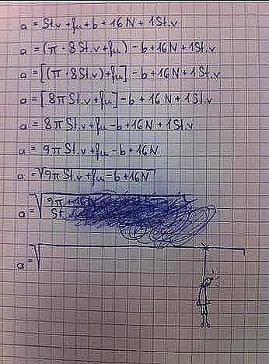 a = St.v + fu + b + 16N + 1St.v
a = (π · 8St.v + fu) - b + 16N + 1St.v
a = [(π · 8St.v) + fu] - b + 16N + 1St.v
a = [8πSt.v + fu] - b + 16N + 1St.v
a = 8πSt.v + fu - b + 16N + 1St.v
a = 9πSt.v + fu - b + 16N
a = √9πSt.v + fu - b + 16N
a = √9π + 16N
St.v
a = √